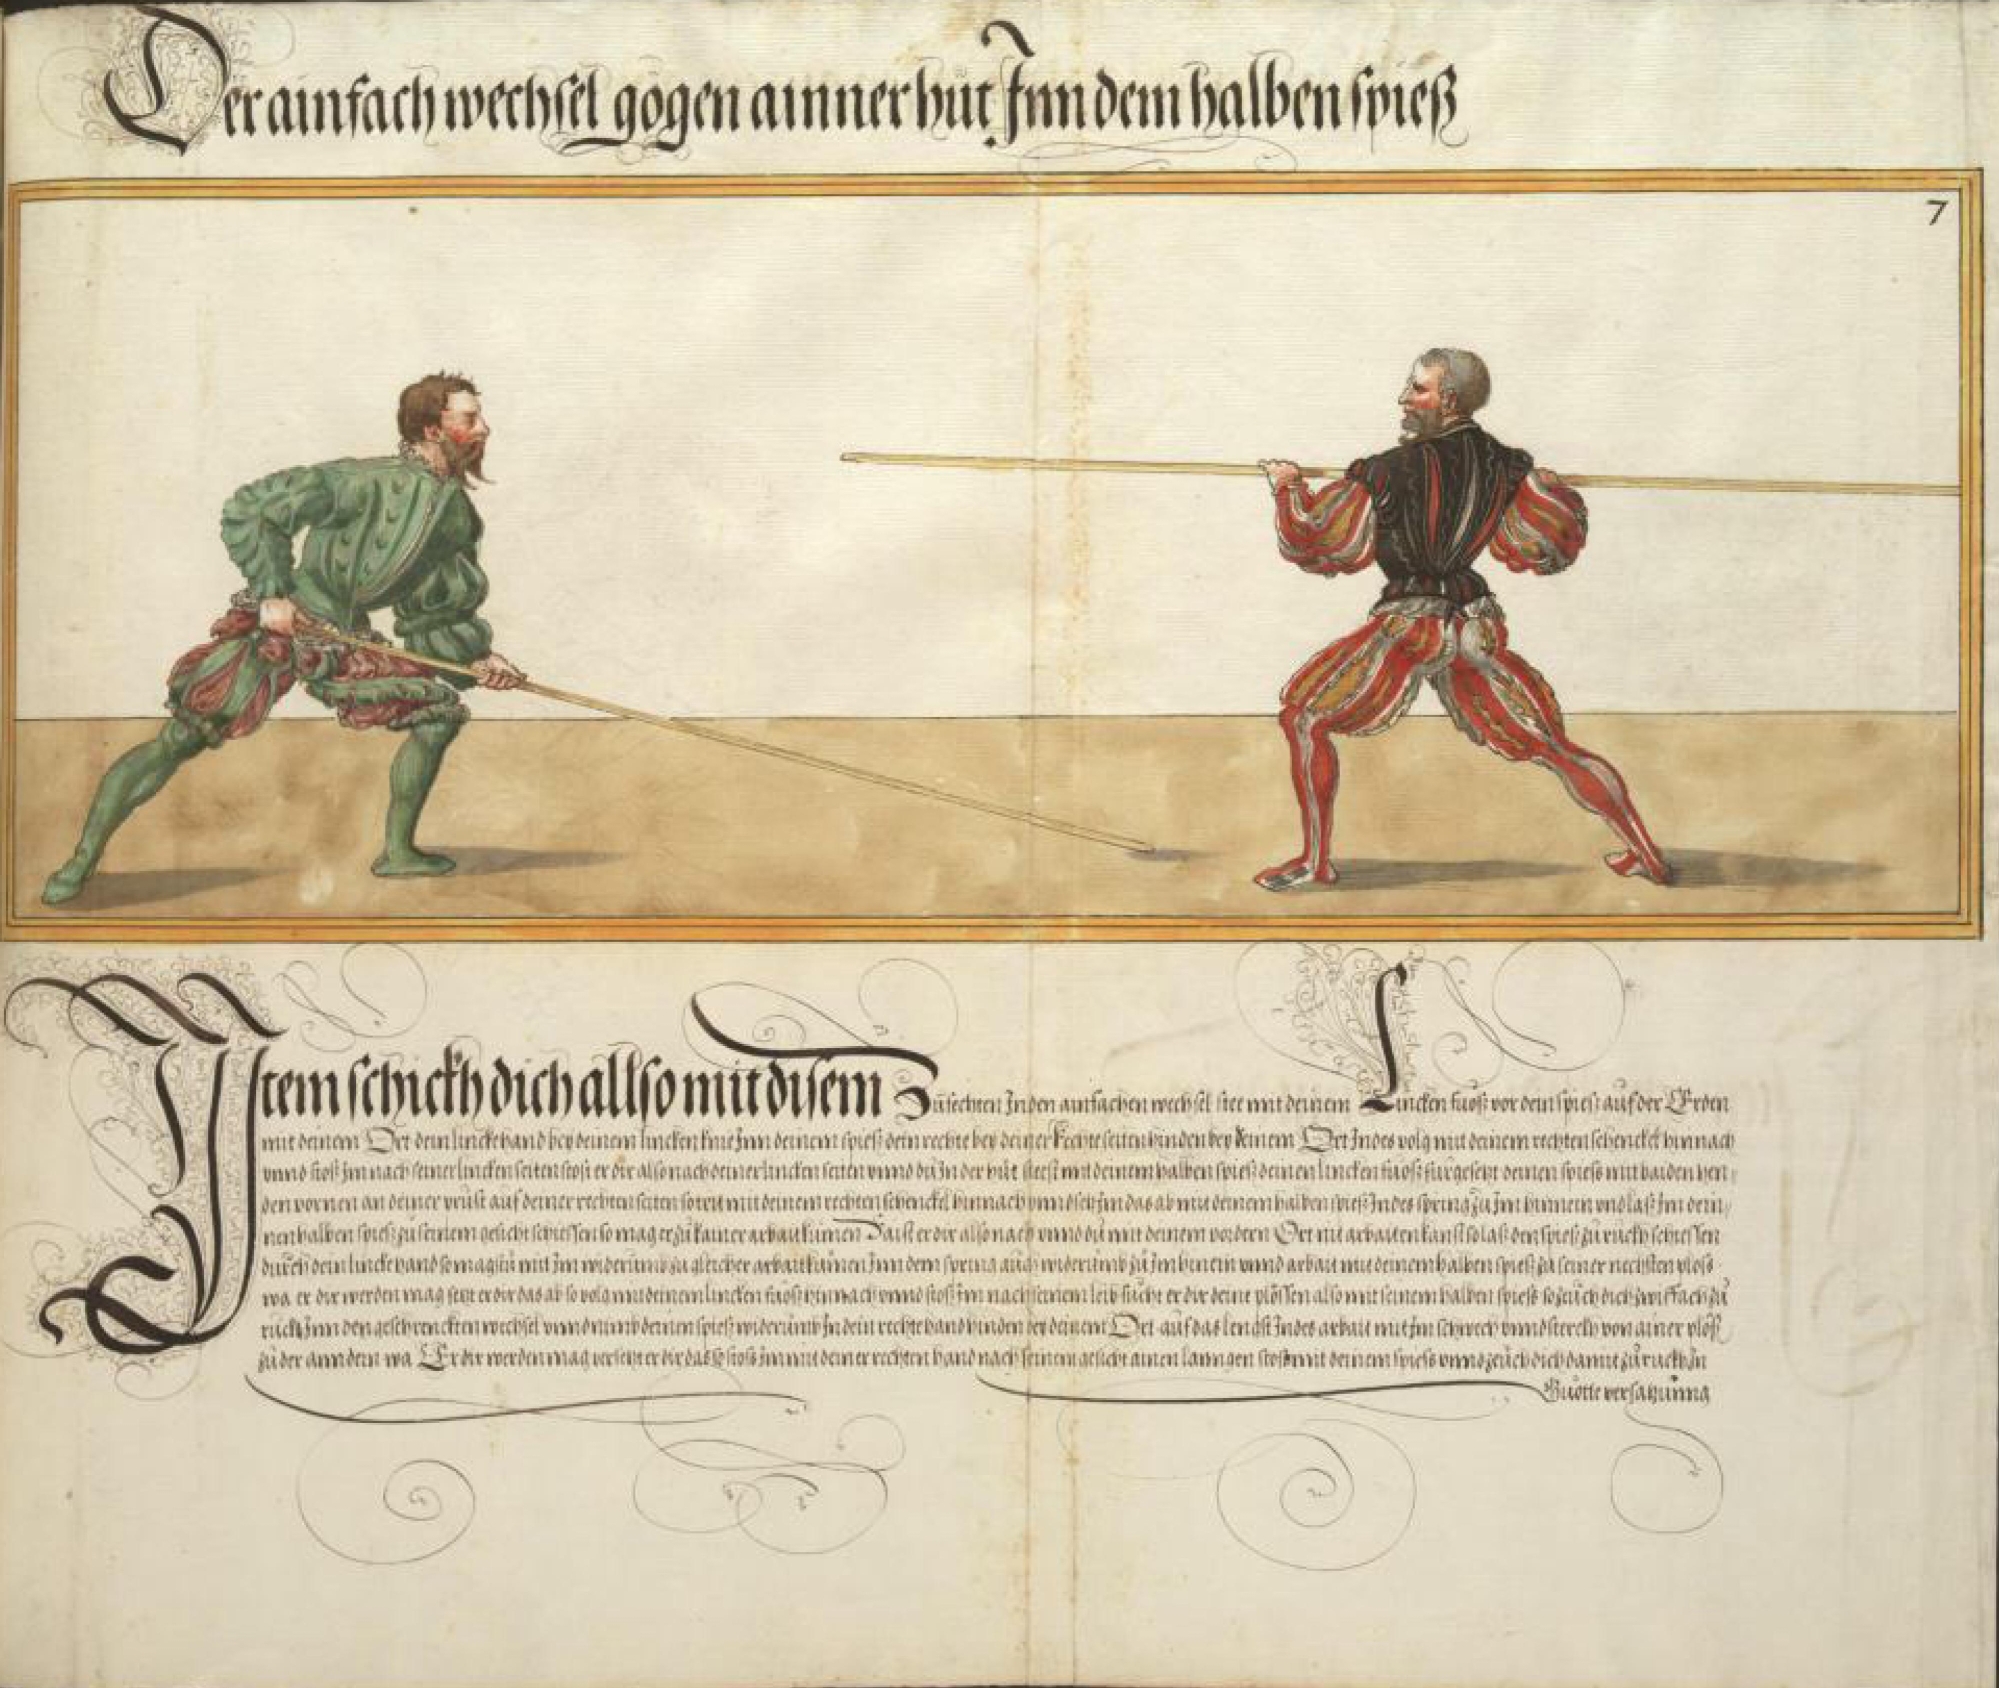 Der ainfach wechsel gögen ainner hut Inn dem halben spieß
7
Item schickh dich allso mit disem Zůfechten In den ainfachen wechsel stee mit deinem Lincken fuoß vor dein spiess auf der Erden
mit deinem Ort dein lincke hand bey deinem lincken knie Inn deinem spieß dein rechte bey deiner Rechte seiten hinden bey deinem Ort Indes volg mit deinem rechten schenckel hinnach
unnd stoß Im nach seiner lincken seiten stost er dir also nach deiner lincken seiten unnd du In der hut steest mit deinem halben spieß deinen lincken fuoß fürgesetzt deinen spieß mit baiden hen-
den vornen an deiner prust auf deiner rechten seiten so trit mit deinem rechten schenckel hinnach unnd setz Im das ab mit deinem halben spieß Indes spring zu Im hinnein und laß Im dein-
nen halben spieß zu seinem gesicht schiessen so mag er zu kainer arbait kumen Da ist er dir also nach unnd du mit deinem vordern Ort nit arbaiten kanst so laß den spieß zu ruckh schiessen
durch dein lincke hand so magstu mit Im widerumb zu gleicher arbait kumen Inn dem spring auch widerumb zu Im hinein unnd arbait mit deinem halben spieß zu seiner nechsten plöss
wa er dir werden mag setzt er dir das ab so volg mit deinem lincken fuoß hinnach unnd stoß Im nach seinem leib sucht er dir deine plössen also mit seinem halben spieß so zeuch dich zwiffach zu
ruckh Inn den geschrenckten wechsel unnd nimb deinen spieß widerumb In dein rechte hand hinden bey deinem Ort auf das lengst Indes arbait mit Im schwech unnd sterckh von ainer plöß
zu der anndern wa Er dir werden mag versetzt er dir das so stoß Im mit deiner rechten hand nach seinem gesicht ainen lanngen stoß mit deinem spiess unnd zeuch dich damit zu ruckh In
Guotte versatzunng